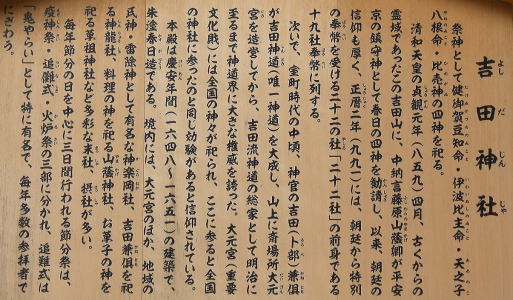 吉田神社
よしだじんじゃ
祭神として健御賀豆知命・伊波比主命・天之子
八根命・比売神の四神を祀る。
清和天皇の貞観元年(八五九)四月、古くからの
霊域であったこの吉田山に、中納言藤原山蔭卿が平安
京の鎮守神として春日の四神を勧請し、以来、朝廷の
信仰も厚く、正暦二年(九九一)には、朝廷から特別
の奉幣を受ける二十二の社「二十二社」の前身である
十九社奉幣に列する。
次いで、室町時代の中頃、神官の吉田(卜部)兼俱
が吉田神道(唯一神道)を大成し、山上に斎場所大元
宮を造営してから、吉田流神道の総家として明治に
至るまで神道界に大きな権威を誇った。大元宮(重要
文化財)には全国の神々が祀られ、ここに参ると全国
の神社に参ったのと同じ効験があると信仰されている。
本殿は慶安年間(一六四八〜一六五一)の建築で、
朱塗春日造である。境内には、大元宮のほか、地域の
氏神・雷除神として有名な神楽岡社、吉田兼俱を祀
る神龍社、料理の神を祀る山蔭神社、お菓子の神を
祀る菓祖神社など多彩な末社、摂社が多い。
毎年節分の日を中心に三日間行われる節分祭は、
疫神祭・追儺式・火炉祭の三部に分かれ、追儺式は
「鬼やらい」として特に有名で、毎年多数の参拝者で
にぎわう。